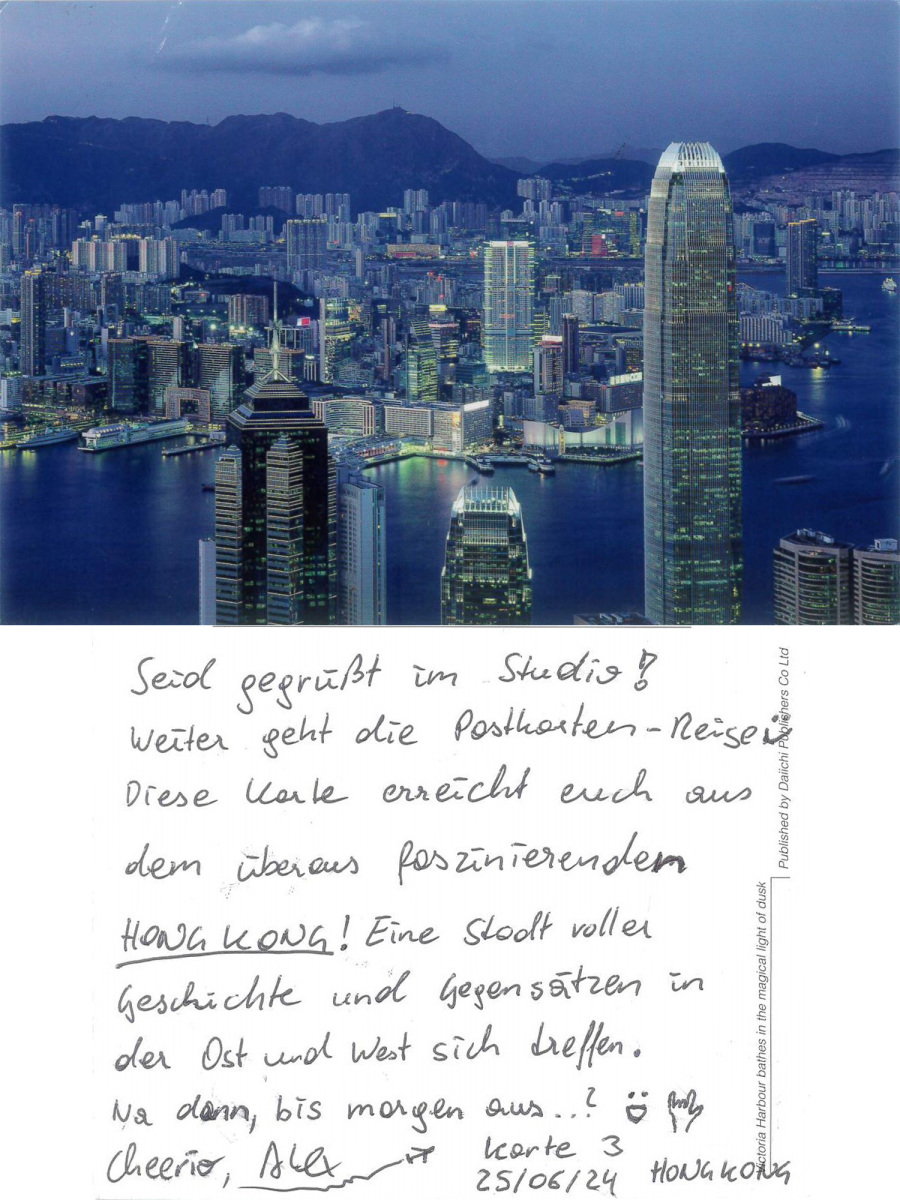 Seid gegrüßt im Studio!
Weiter geht die Postkarten-Reise
Diese Karte erreicht euch aus
dem überaus faszinierenden
HONG KONG! Eine Stadt voller
Geschichte und Gegensätzen in
der Ost und West sich treffen.
Na dann, bis morgen aus...?
Cheerio, Alex
Karte 3
25/06/24 HONGKONG
Published by Daiichi Publishers Co Ltd
Victoria Harbour bathes in the magical light of dusk